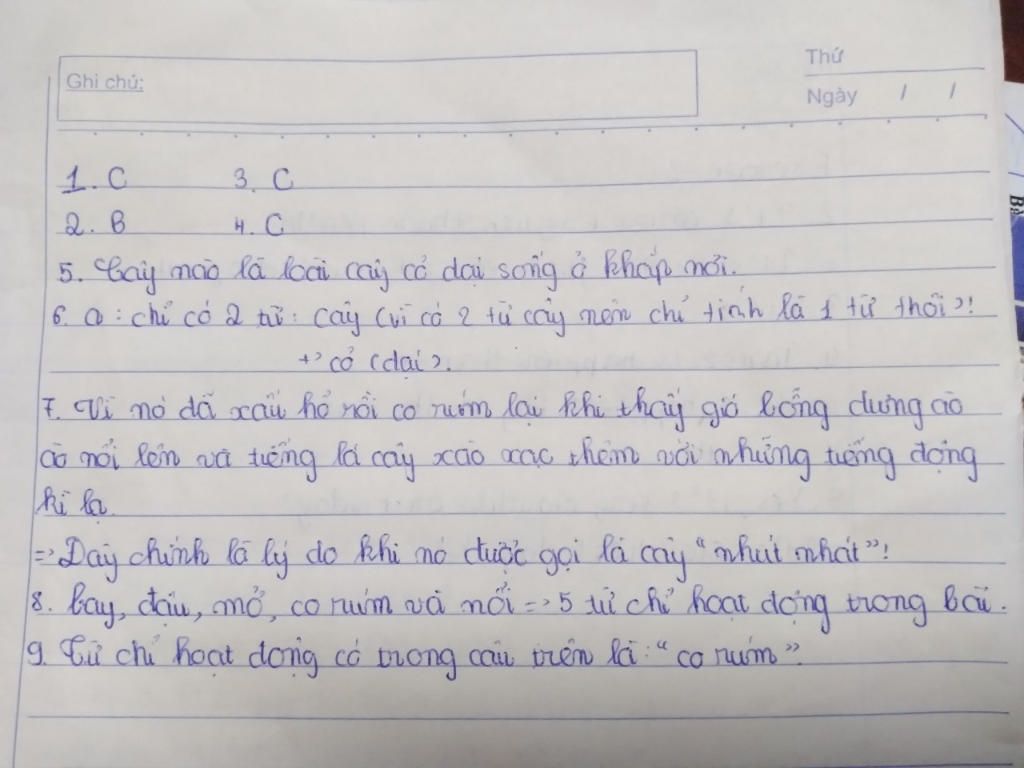 Thứ
Ghi chú:
Ngày / /
1. C 3. C
2. B 4. C
5. Cây nào là loài cây cỏ dại sống ở khắp nơi.
6. a: chỉ có 2 từ: cây (vì có 2 từ cây nên chỉ tính là 1 từ thôi)!
+> cỏ (dại).
7. Vì nó đã xấu hổ rồi co rúm lại khi thấy gió bỗng dưng ào
ào nổi lên và tiếng lá cây xào xạc thêm với những tiếng động
kì lạ.
=> Đây chính là lý do khi nó được gọi là cây "nhút nhát"!
8. bay, đậu, mở, co rúm và nổi => 5 từ chỉ hoạt động trong bài.
9. Từ chỉ hoạt động có trong câu trên là: "co rúm".